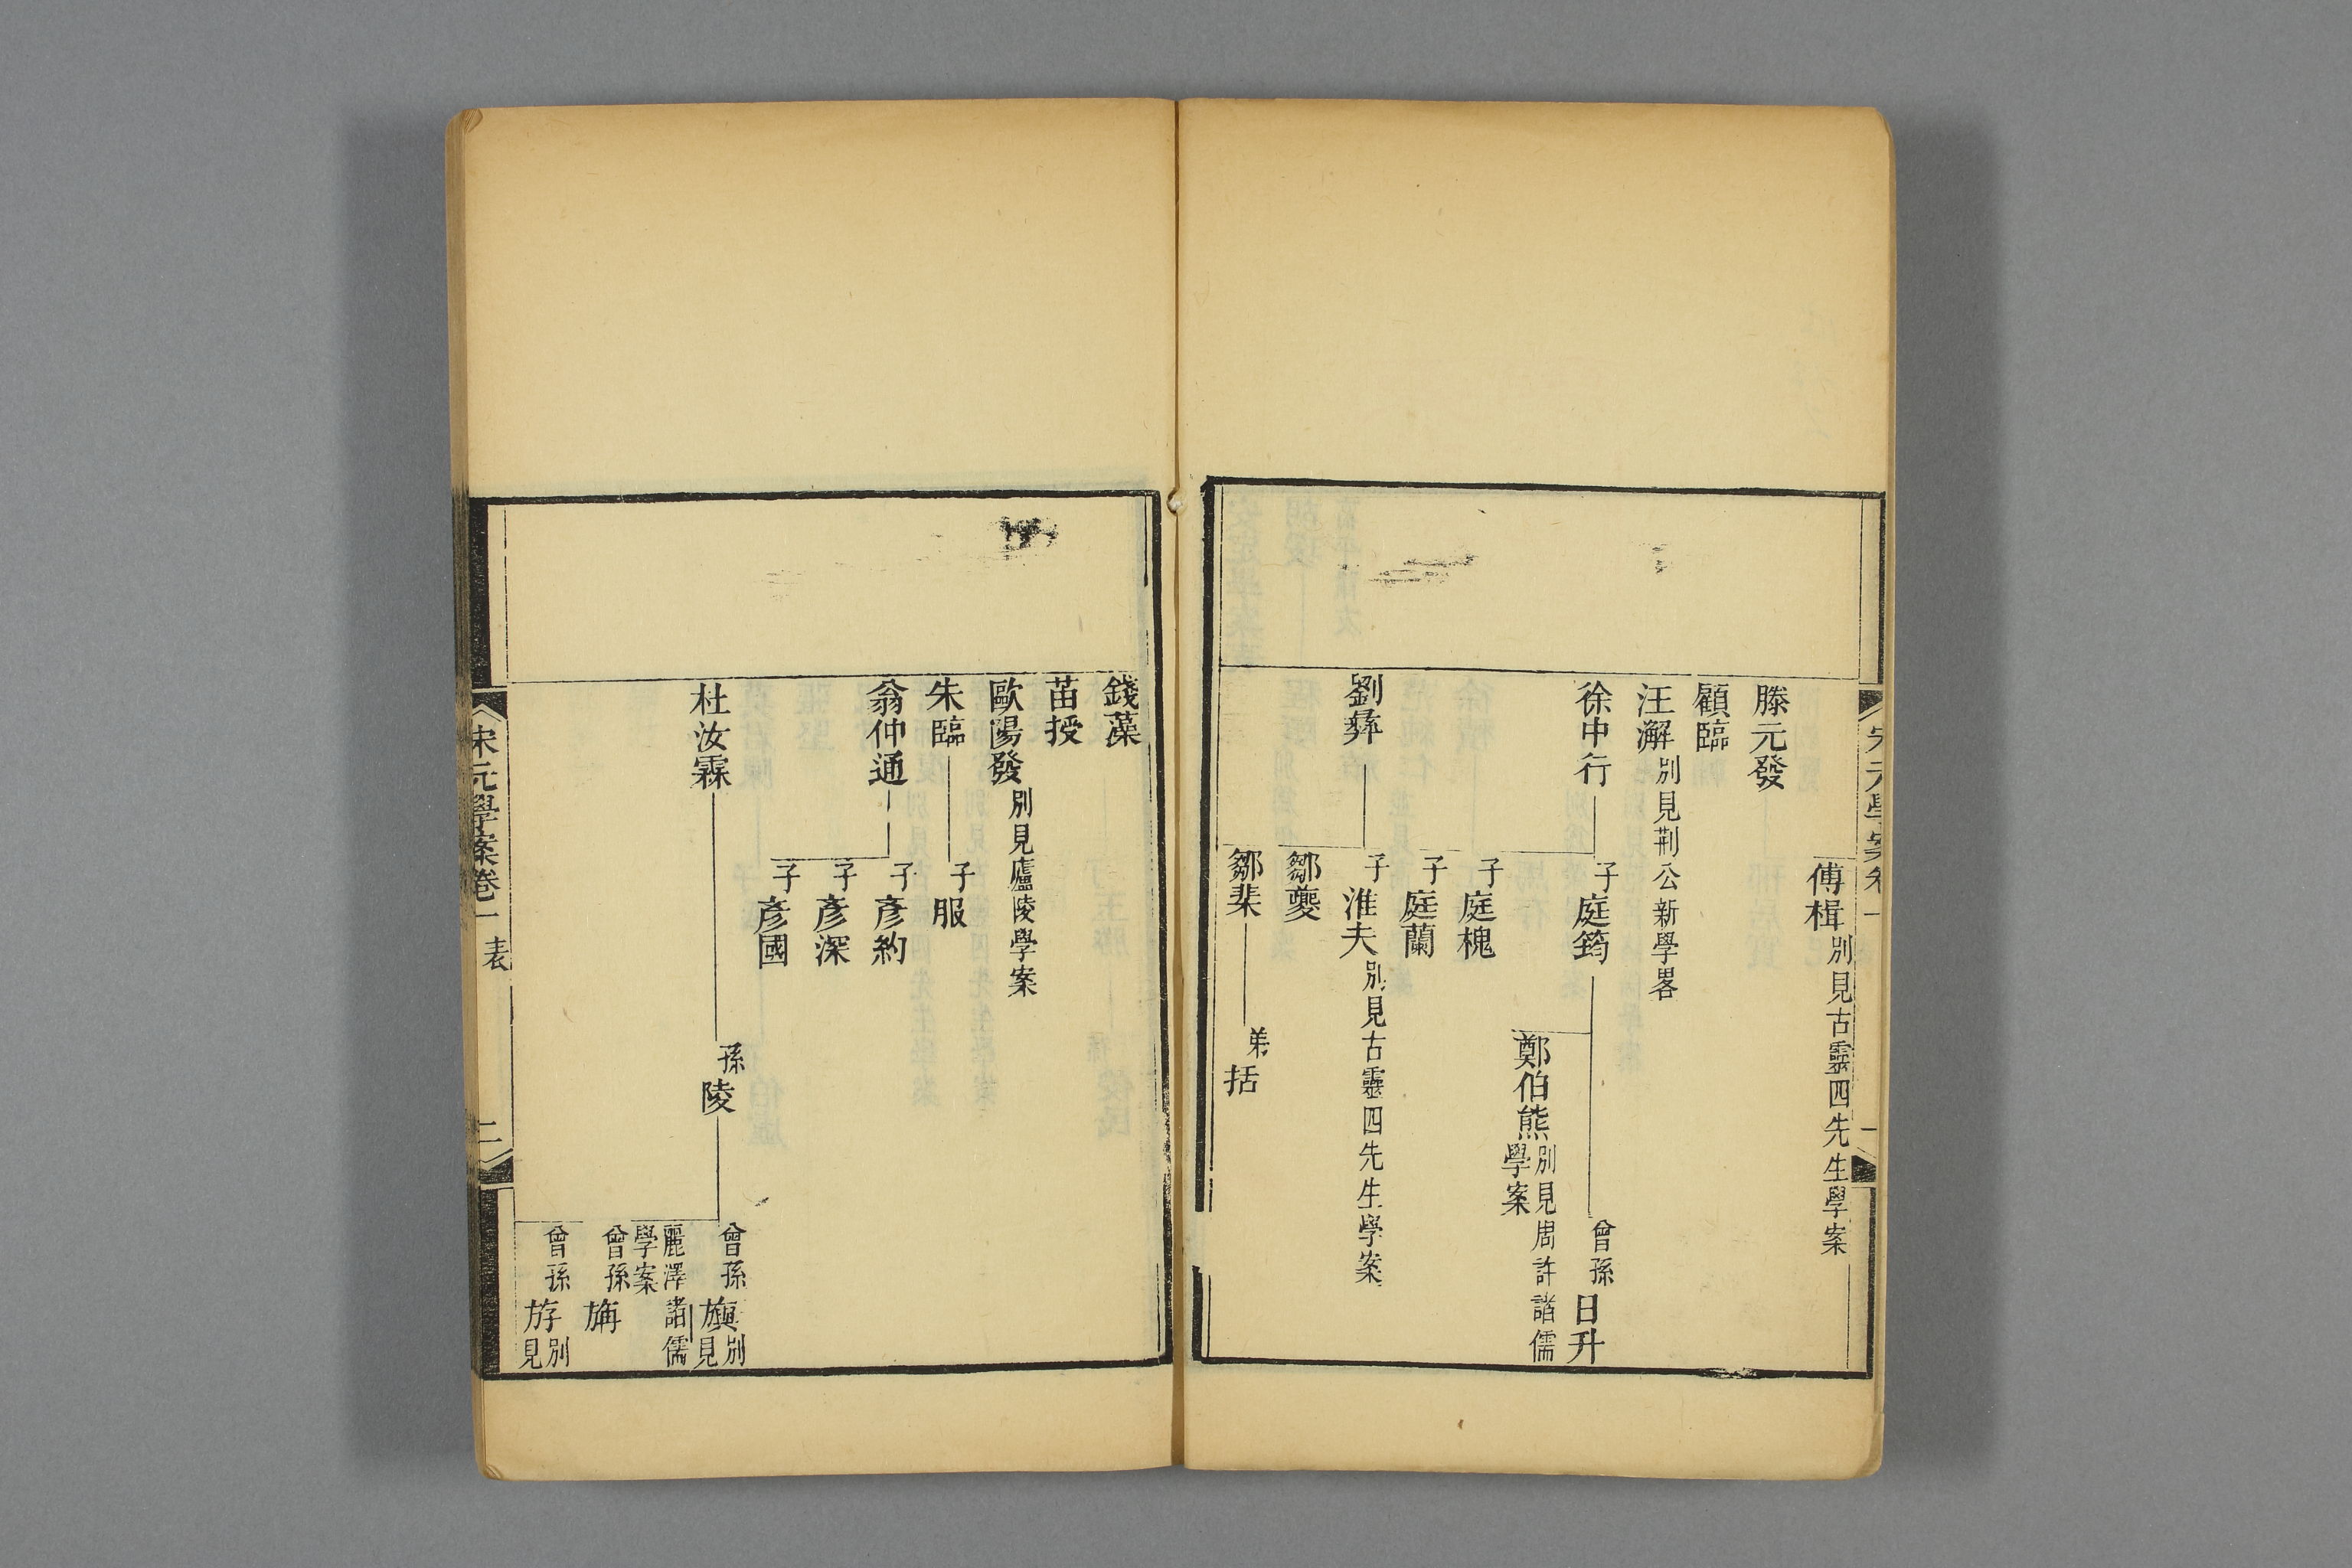 宋元學案卷一
一
傅楫別見古靈四先生學案
滕元發
顧臨
汪澥別見荆公新學畧
徐中行
子庭筠
曾孫日升
鄭伯熊別見周許諸儒
學案
子庭槐
子庭蘭
劉彝
子淮夫別見古靈四先生學案
鄒夔
鄒棐
弟括
錢藻
苗授
歐陽發別見廬陵學案
朱臨
子服
翁仲通
子彥約
子彥深
子彥國
杜汝霖
孫陵
曾孫旟別見
麗澤諸儒
學案
曾孫
曾孫斿別見
宋元學案卷一
表
二